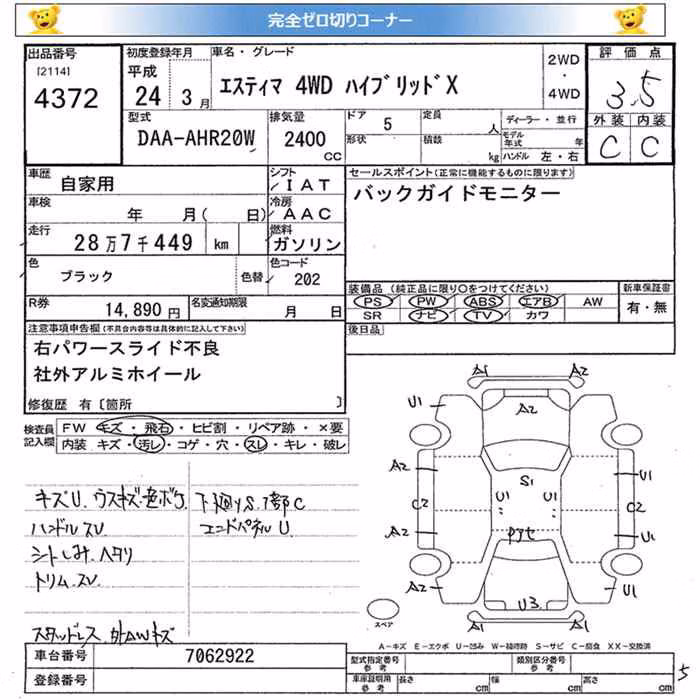 完全ゼロ切りコーナー
出品番号 初度登録年月 車名・グレード 2WD・4WD 評価点
[2114] 平成 エスティマ 4WD ハイブリッドX 3.5
4372 24 3月 外装 内装
型式 排気量 ドア 5 定員 人 ディーラー・並行 C C
DAA-AHR20W 2400 CC 形状 積載 kg モデル年式 年
ハンドル 左・右
車歴 自家用 シフト IAT セールスポイント(正常に機能するものに限ります)
車検 年 月( 日) 冷房 AAC バックガイドモニター
走行 28万7千449 km 燃料 ガソリン
色 ブラック 色替 色コード 202
装備品(純正品に限り○をつけてください) 新車保証書
R券 14,890円 名変通知期限 月 日 PS PW ABS エアB AW 有・無
SR ナビ TV カワ
注意事項申告欄(不具合内容等は具体的に記入して下さい) 後日品
右パワースライド不良
社外アルミホイール
修復歴 有〔箇所 〕
検査員記入欄 FW キズ・飛石・ヒビ割・リペア跡・×要
内装 キズ・汚し・コゲ・穴・スレ・キレ・破レ
A1 A2
U1 A2
A2 S1 U1
C2 U1 U1 C2
A2 U1
A2 U3 U1
A1 A2
スペア
キズU. ウスキズ・色ボケ. 下廻りS. 1部C
ハンドル スレ エンドパネル U.
シートしみ. ヘタリ
トリム. スレ
スタッドレス. 外AWキズ
A-キズ E-エクボ U-凹み W-補修跡 S-サビ C-腐食 XX-交換済
車台番号 7062922 型式指定番号 参考 類別区分番号 参考 5
登録番号 車庫証明用 参考 長さ cm 幅 cm 高さ cm